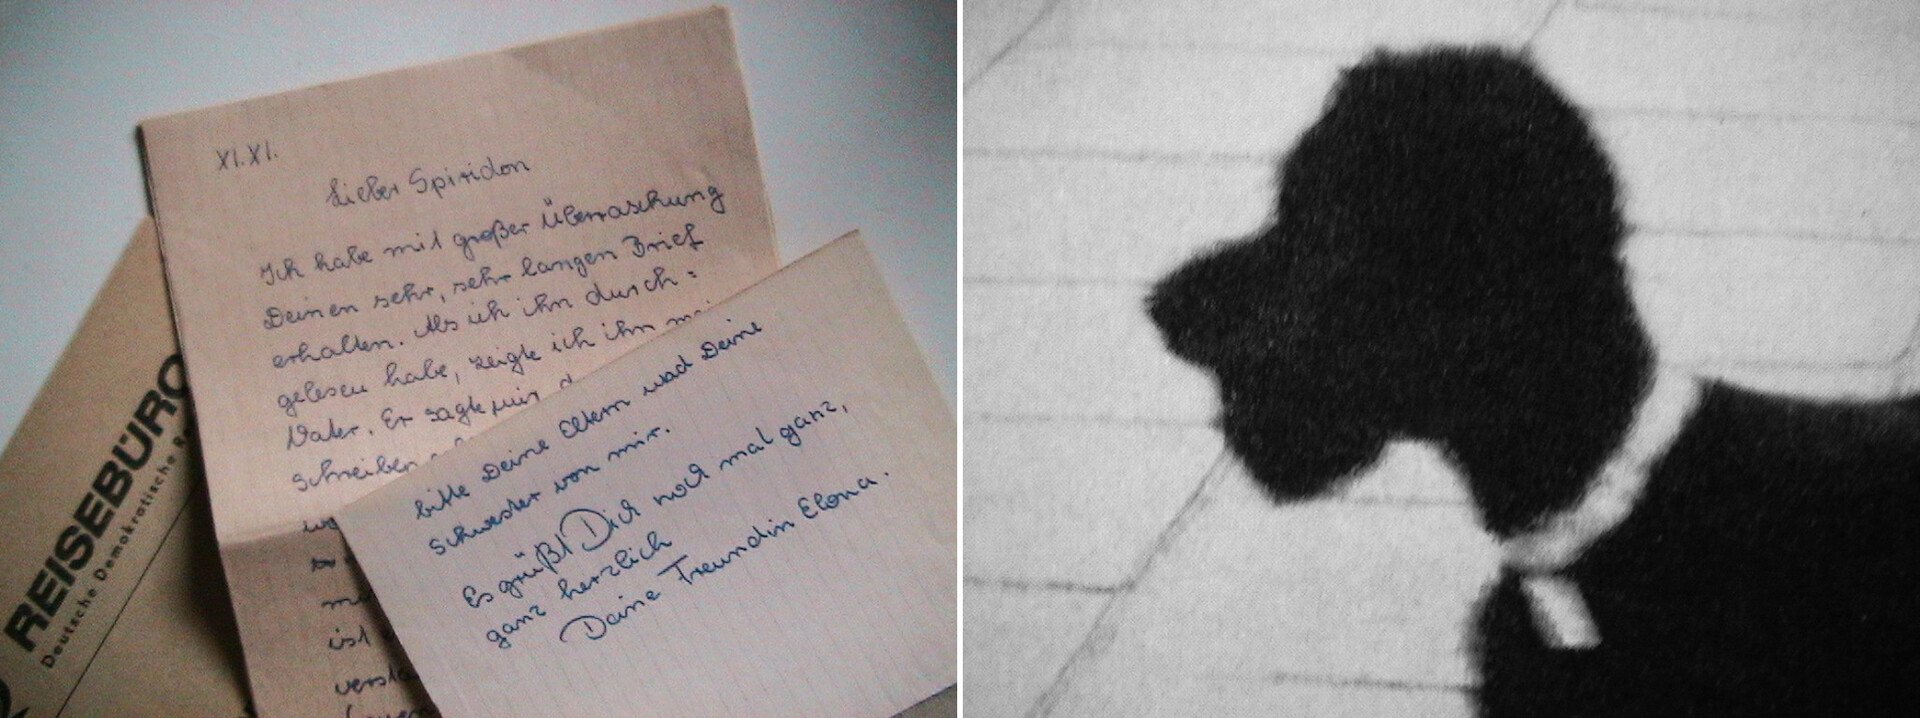 XI.XI.
Lieber Spiridon
Ich habe mit großer Überraschung
Deinen sehr, sehr langen Brief
erhalten. Als ich ihn durch=
gelesen habe, zeigte ich ihn
Vater. Er sagte mir
schreiben
ist
bitte Deine Eltern und Deine
Schwester von mir.
Es grüßt Dich noch mal ganz,
ganz herzlich
Deine Freundin Elona.
REISEBÜRO
Deutsche Demokratische